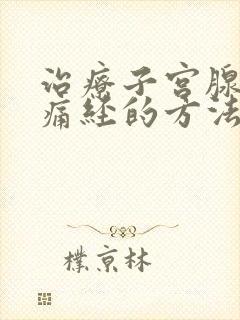 治療子宮腺
痛经的方法
樸京林